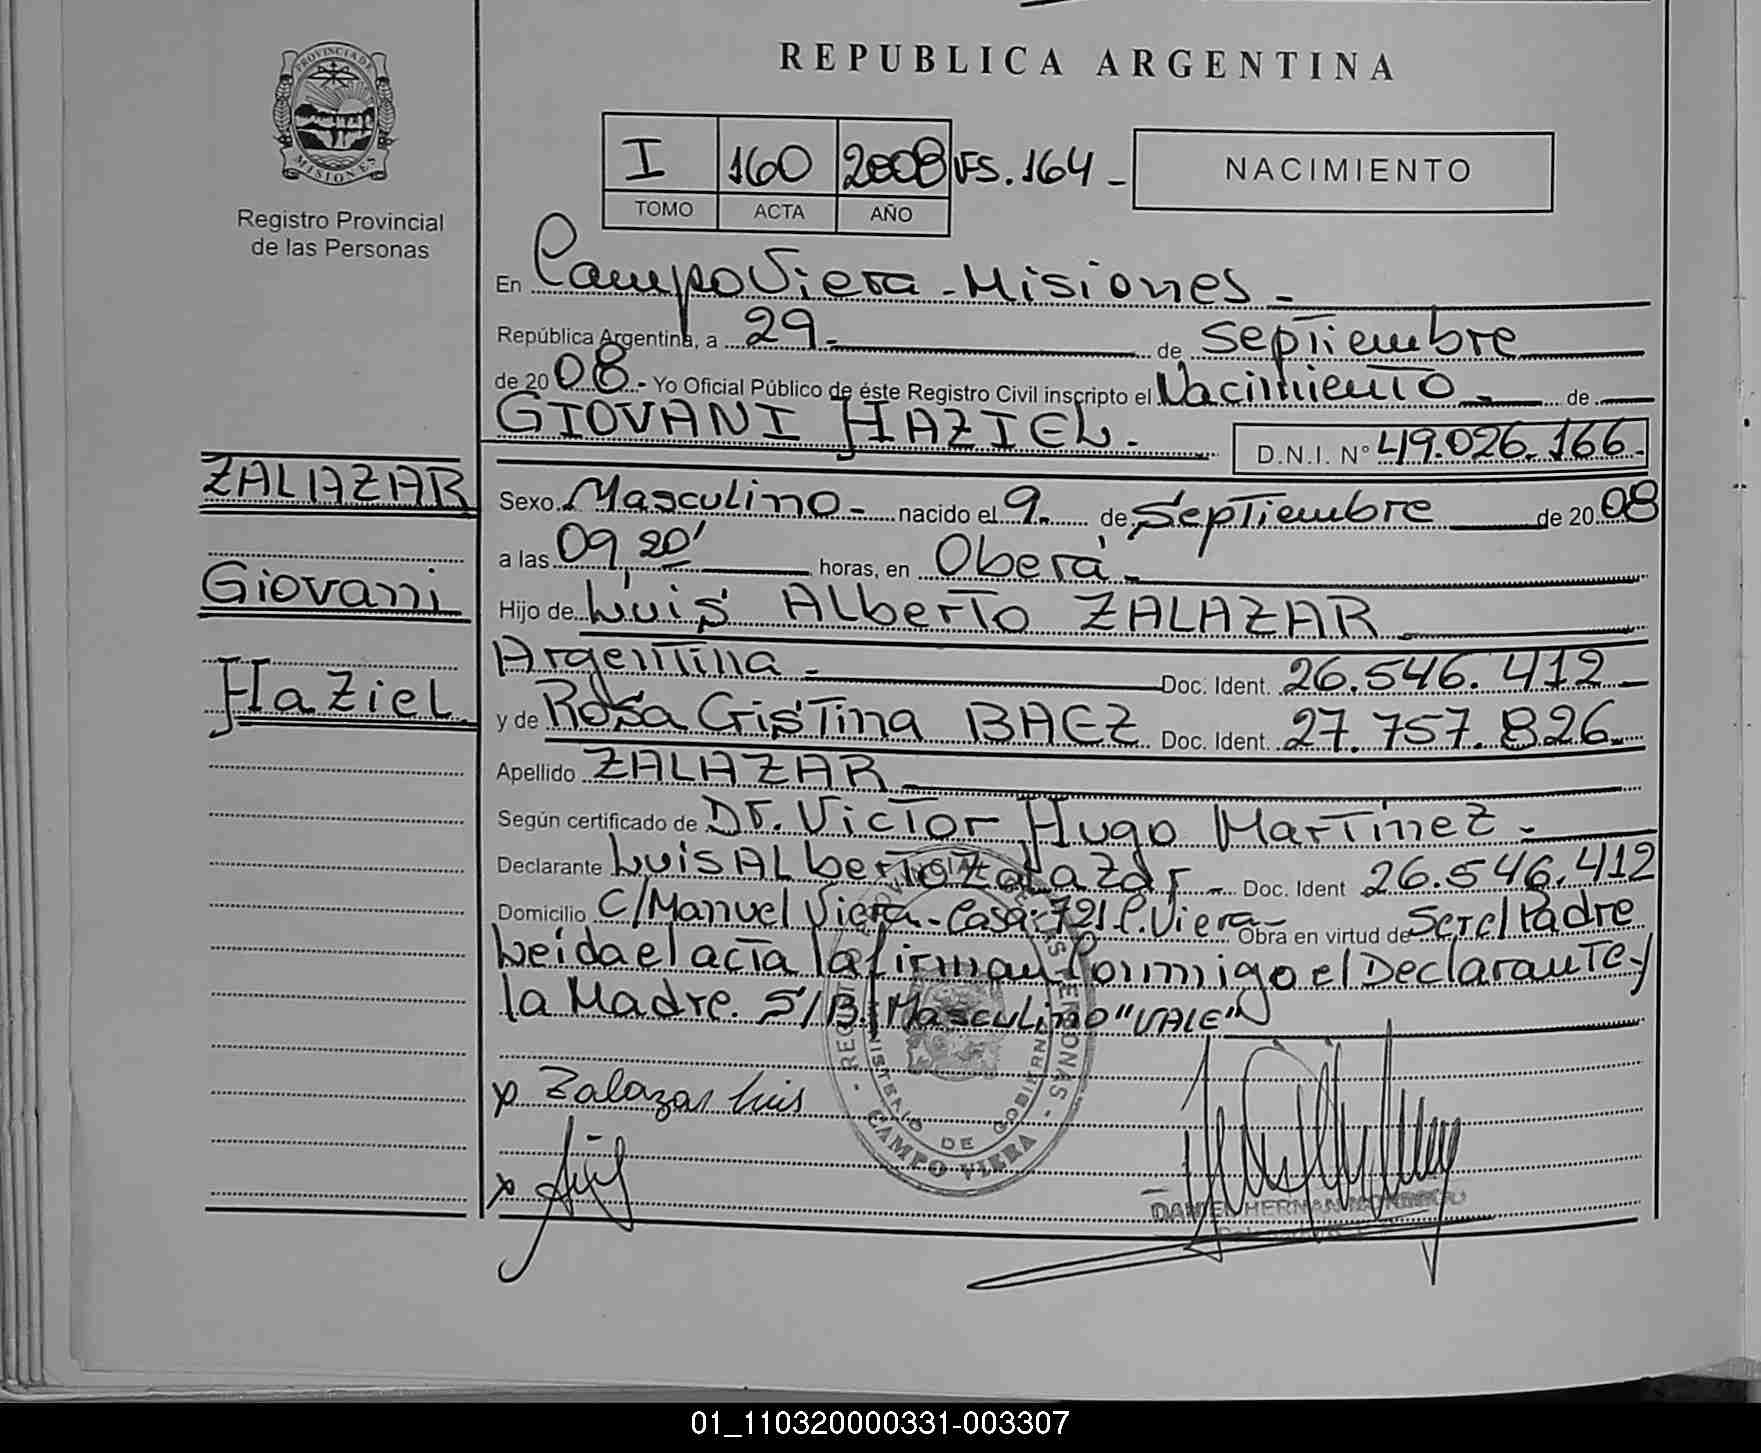 PROVINCIA DE
MISIONES
Registro Provincial
de las Personas
REPUBLICA ARGENTINA
I 160 2008 FS. 164 -
TOMO ACTA AÑO
NACIMIENTO
En Campo Viera - Misiones -
República Argentina, a 29 - de Septiembre
de 20 08 - Yo Oficial Público de éste Registro Civil inscripto el Nacimiento - de
GIOVANI HAZIEL -
D.N.I. N° 49.026.166 -
ZALAZAR
Giovani
Haziel
Sexo Masculino - nacido el 9 de Septiembre de 20 08
a las 09,20' horas, en Oberá -
Hijo de Luis Alberto ZALAZAR
Argentina - Doc. Ident. 26.546.412 -
y de Rosa Cristina BAEZ Doc. Ident. 27.757.826
Apellido ZALAZAR
Según certificado de Dr. Victor Hugo Martinez -
Declarante Luis Alberto Zalazar - Doc. Ident 26.546.412
Domicilio C/Manuel Viera - Casa: 721 C. Viera - Obra en virtud de Ser el Padre
Leida el acta la firman Conmigo el Declarante y
la Madre. S/B: Masculino "VALE"
MINISTERIO DE GOBIERNO
CAMPO VIERA
x Zalazar Luis
x
DANIEL HERNAN
01_110320000331-003307